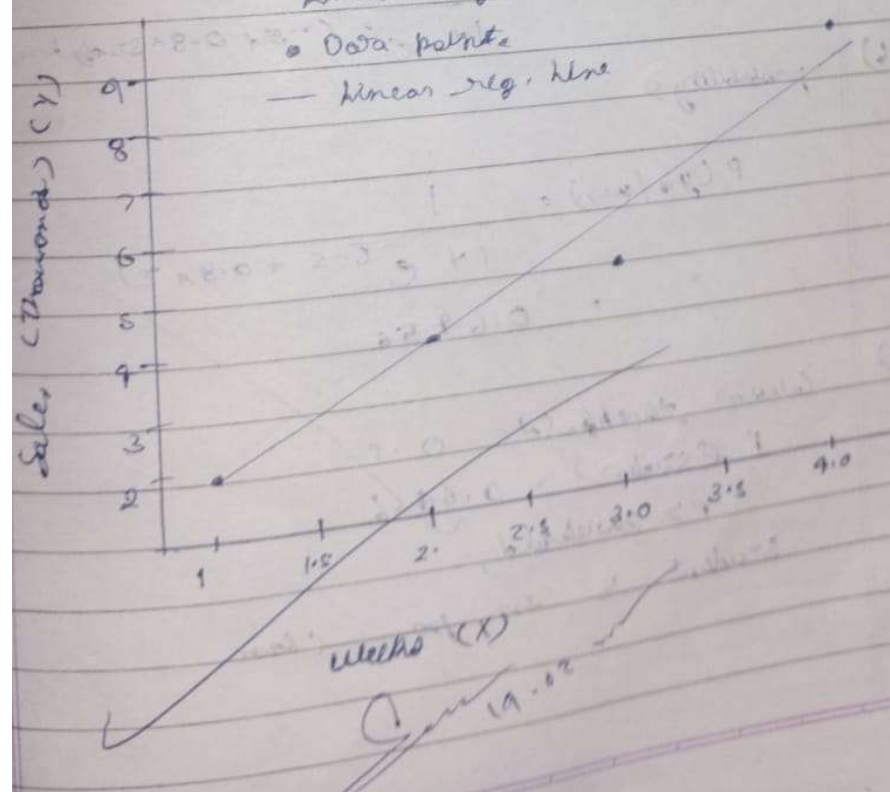 • Data points
— Linear reg. line
Sales (Thousands) (Y)
9
8
7
6
5
4
3
2
1 1.5 2. 2.5 3.0 3.5 4.0
Weeks (X)